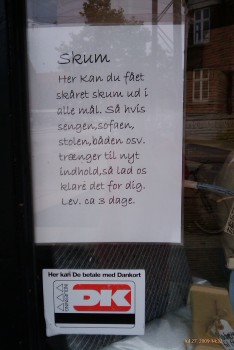 Skum
Her Kan du fået
skåret skum ud i
alle mål. Så hvis
sengen,sofaen,
stolen,båden osv.
trænger til nyt
indhold,så lad os
klare det for dig.
Lev. ca 3 dage.
Her kan De betale med Dankort
DK